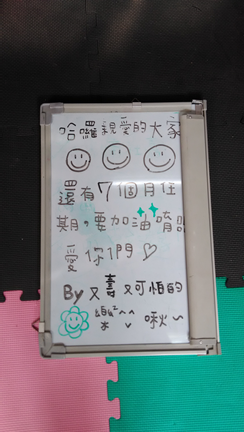 哈囉親愛的大家
還有7個月住
期,要加油唷!!
愛你們♡
By 又喜又可怕的
啾~